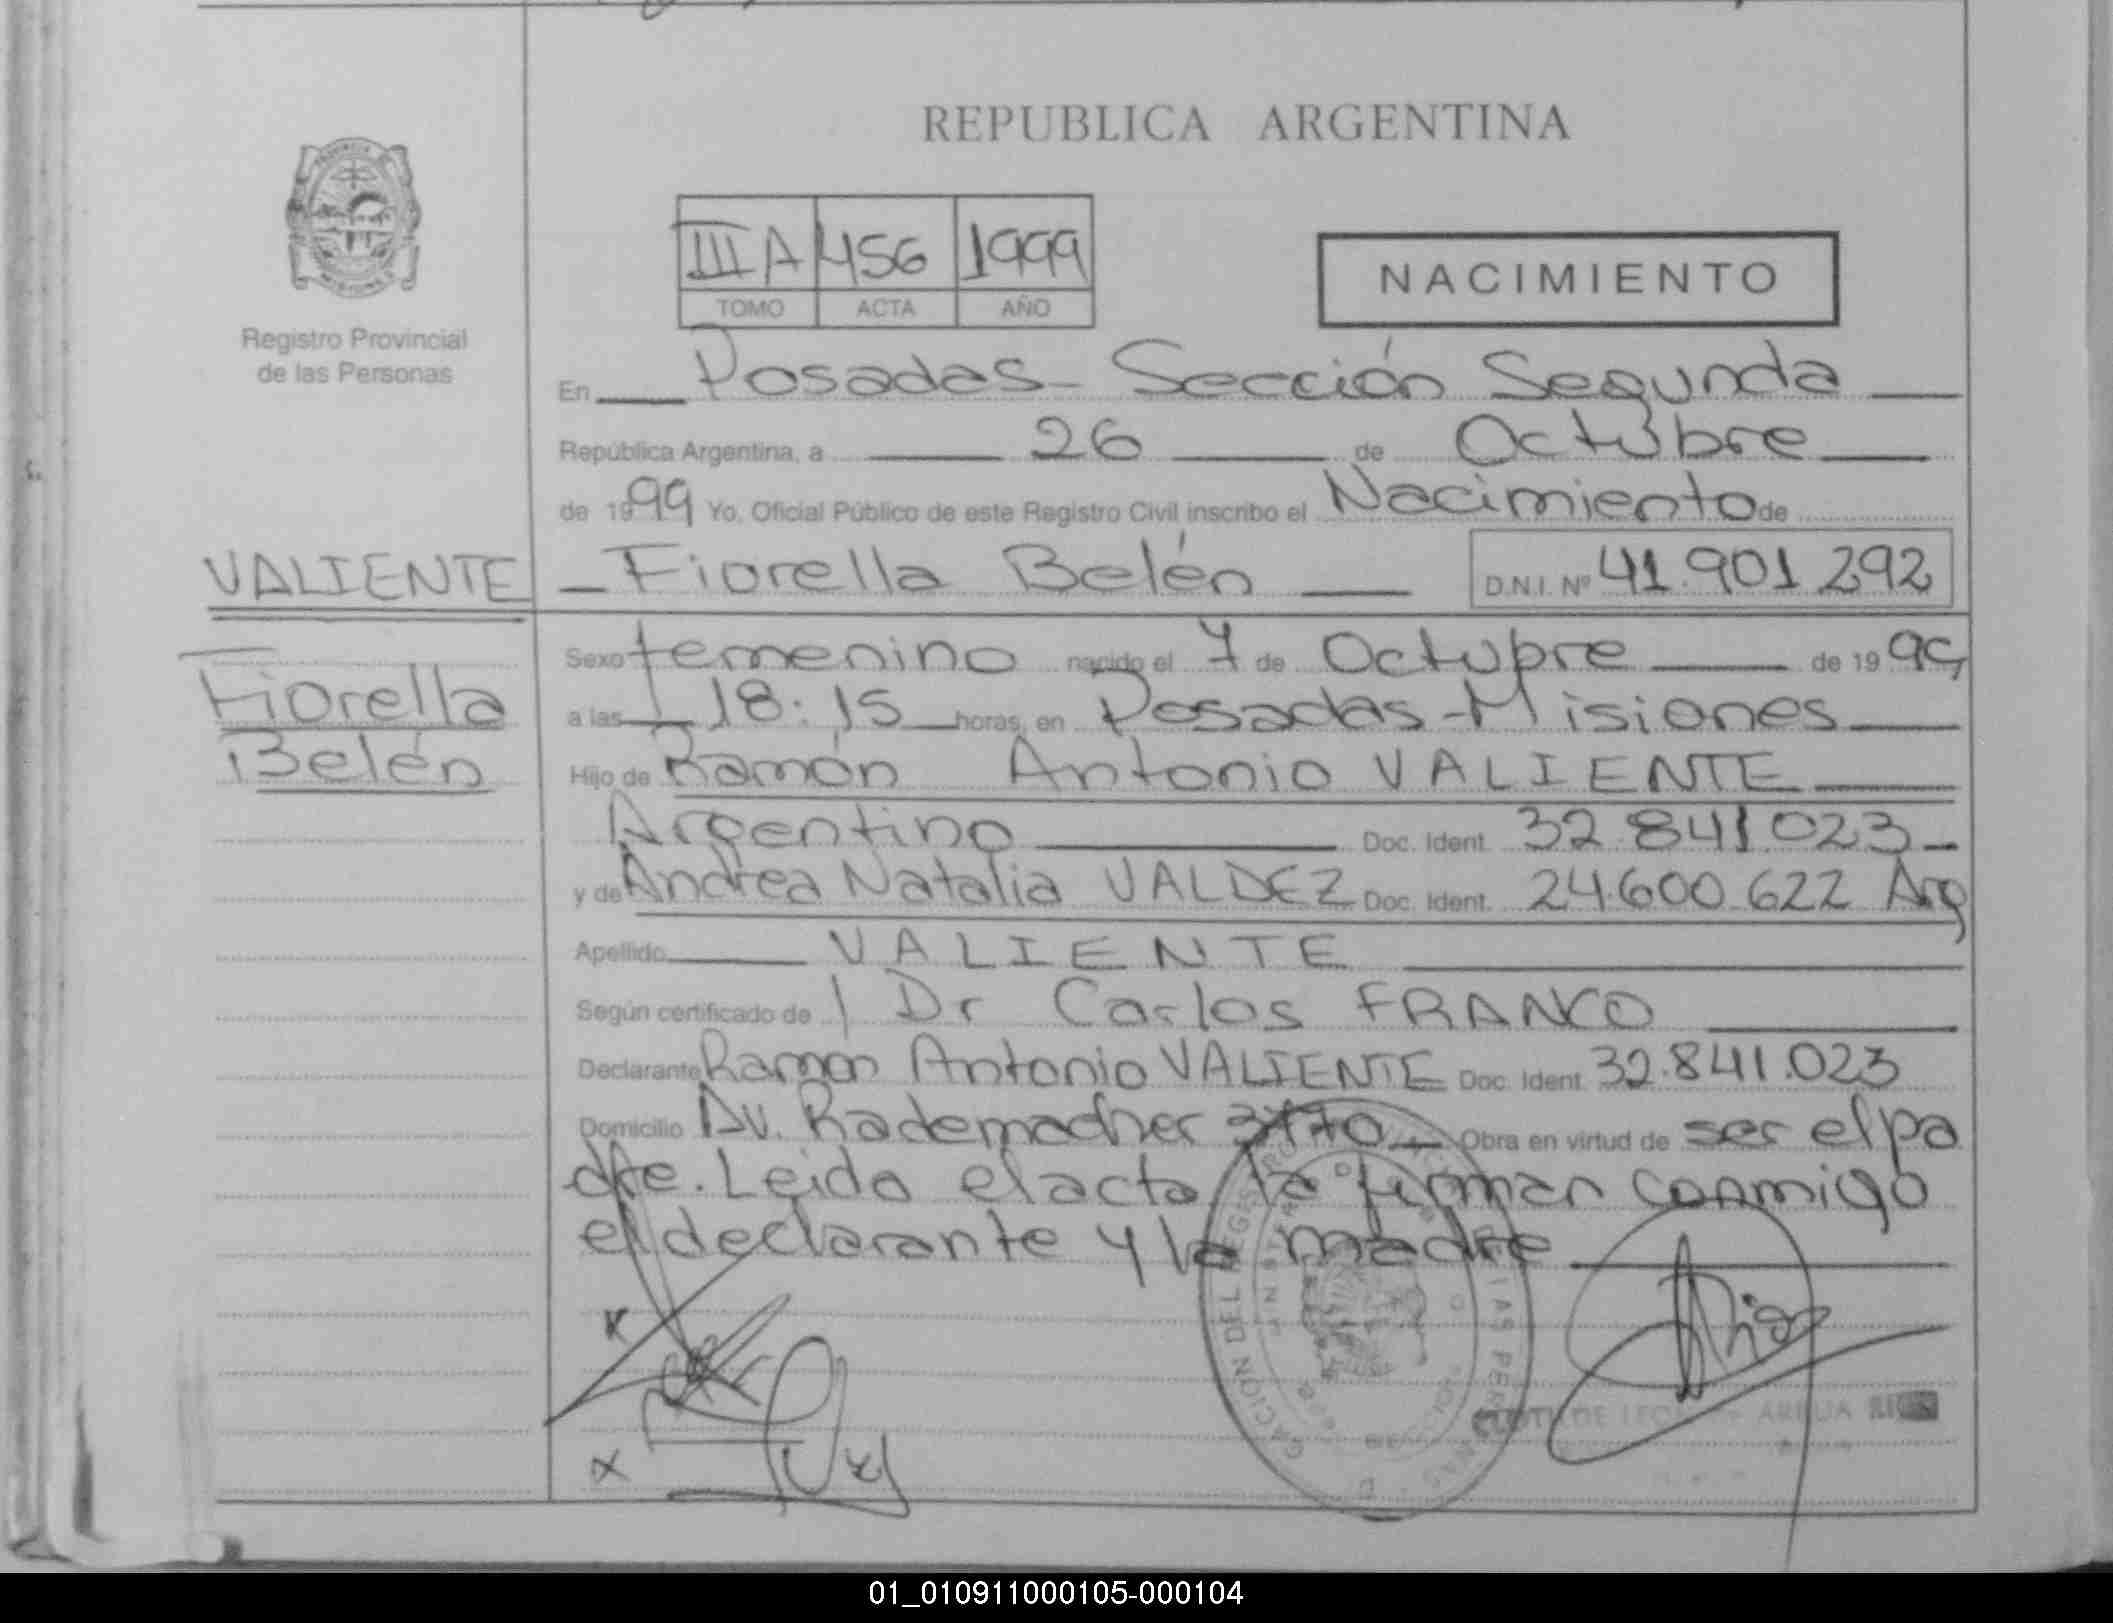 REPUBLICA ARGENTINA
III A 456 1999
TOMO ACTA AÑO
NACIMIENTO
Registro Provincial
de las Personas
En Posadas - Sección Segunda
República Argentina, a 26 de Octubre
de 1999 Yo, Oficial Público de este Registro Civil inscribo el Nacimiento de
VALIENTE
Fiorella Belén
D.N.I. Nº 41.901.292
Fiorella
Belén
Sexo femenino nacido el 7 de Octubre de 1999
a las 18:15 horas, en Posadas - Misiones
Hijo de Ramón Antonio VALIENTE
Argentino Doc. Ident. 32.841.023
y de Andrea Natalia VALDEZ Doc. Ident. 24.600.622 Arg
Apellido VALIENTE
Según certificado de Dr Carlos FRANCO
Declarante Ramon Antonio VALIENTE Doc. Ident. 32.841.023
Domicilio Av. Rademacher Obra en virtud de ser el pa
dre. Leido el acta la firman conmigo
el declarante y la madre
01_010911000105-000104